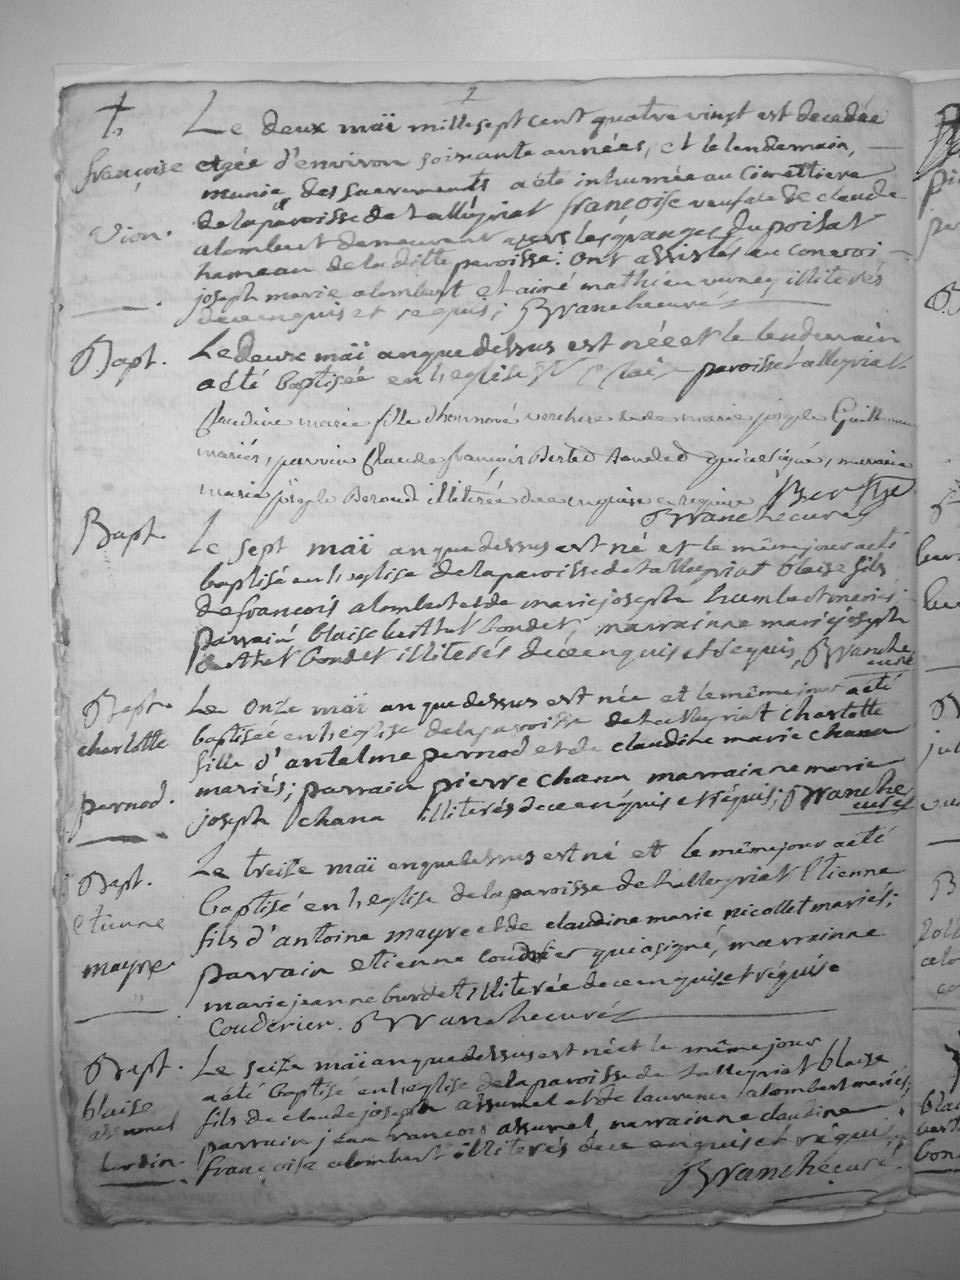 2
†
françoise
vion.
Le deux maï mille sept cent quatre vingt est decedée
et agée d'environ soixante années, et le lendemain,
munie des sacrements a été inhumée au Cimettiere
de la paroisse de talleyriat françoise veufve de claude
alombert demeurant les granges du poisat
hameau de la ditte paroisse: ont assistés au convoi
joseph marie alombert et aimé mathieu illiterés
de ce enquis et requis; Branche curé
Bapt.
Le deux maï an que dessus est née et le lendemain
a été baptisée en l'eglise paroisse talleyriat
Claudine marie fille d'honnoré verchere et de marie josephe Guillermin
mariés, parrain Claude françois Bertet qui a signé, marraine
marie josephe Beroud illiterée de ce enquise et requise
Branche curé
Bapt.
Le sept maï an que dessus est né et le même jour a été
baptisé en l'eglise de la paroisse de talleyriat blaise fils
de françois alombert et de marie joseph humbert mariés;
parrain blaise berthet bondet, marrainne marie joseph
berthet bondet illiterés de ce enquis et requis, Branche
curé
Bapt.
charlotte
pernod.
Le onze maï an que dessus est née et le même jour a été
baptisée en l'eglise de la paroisse de talleyriat charlotte
fille d'antelme pernod et de claudine marie chana
mariés; parrain pierre chana marrainne marie
joseph chana illiterés de ce enquis et réquis; Branche
curé
Bapt.
etienne
mayre
Le treize maï an que dessus est né et le même jour a été
baptisé en l'eglise de la paroisse de talleyriat Etienne
fils d'antoine mayre et de claudine marie nicollet mariés;
parrain etienne coudrier qui a signé, marrainne
marie jeanne burdet illiterée de ce enquise et réquise
Couderier. Branche curé
Bapt.
blaise
assumel
lurdin.
Le seize maï an que dessus est né et le même jour
a été baptisé en l'eglise de la paroisse de talleyriat blaise
fils de claude joseph assumel et de laurence alombert mariés;
parrain jean francois assumel, marrainne claudine
françoise alombert illiterés de ce enquis et réquis.
Branche curé.